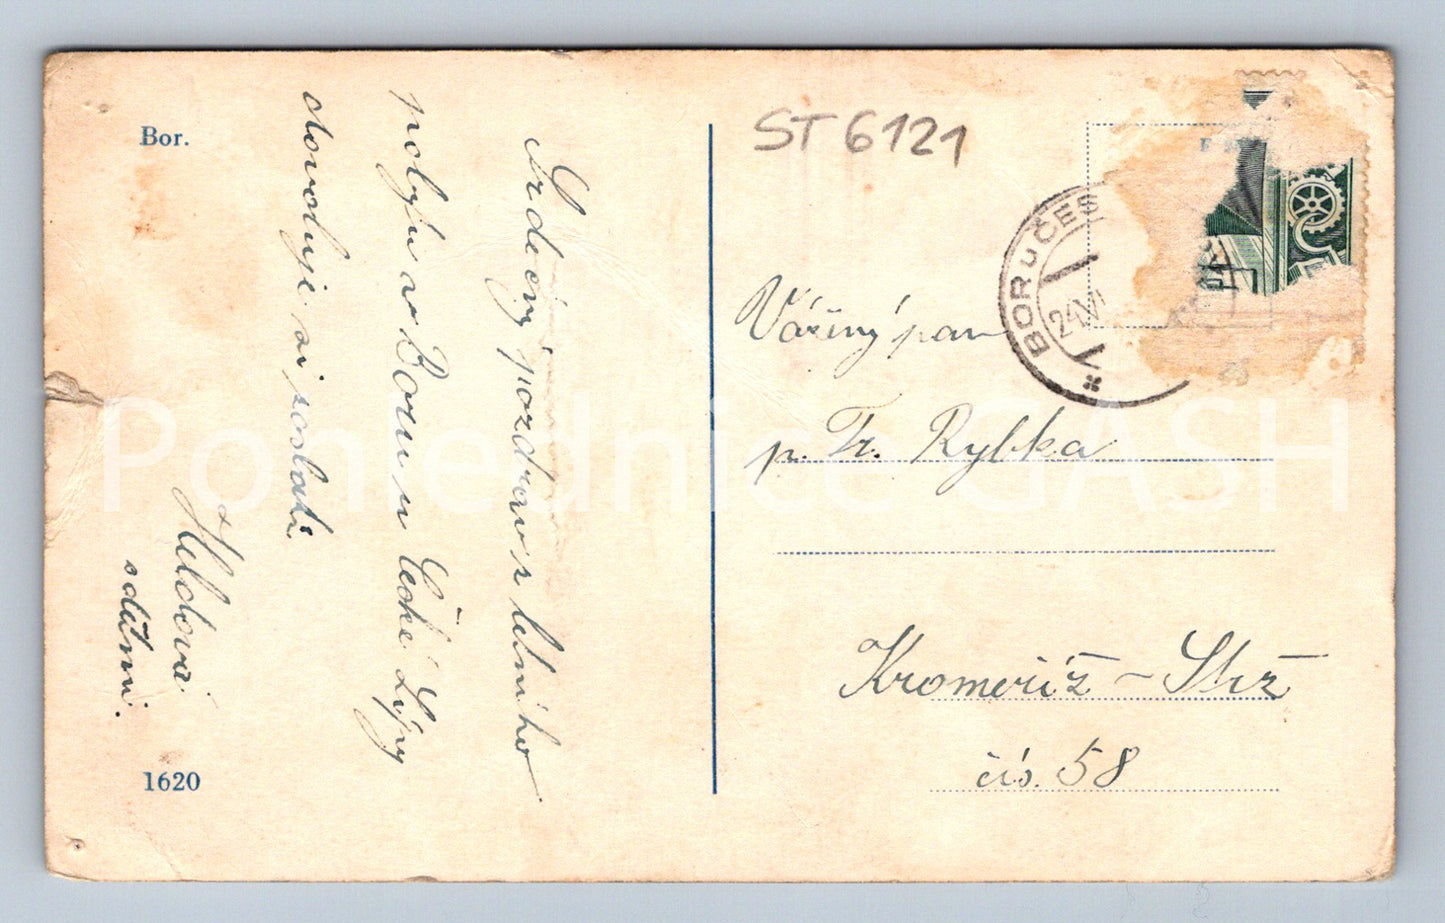 Bor.
Srdečný pozdrav z letního
pobytu v Boru u České Lípy
dovoluje si poslati
Heldová
s dětmi.
1620
ST 6121
BOR U ČES
24.VI
Vážený pan
p. Fr. Rybka
Kroměříž – Strž
čís. 58
Pohlednice GASH